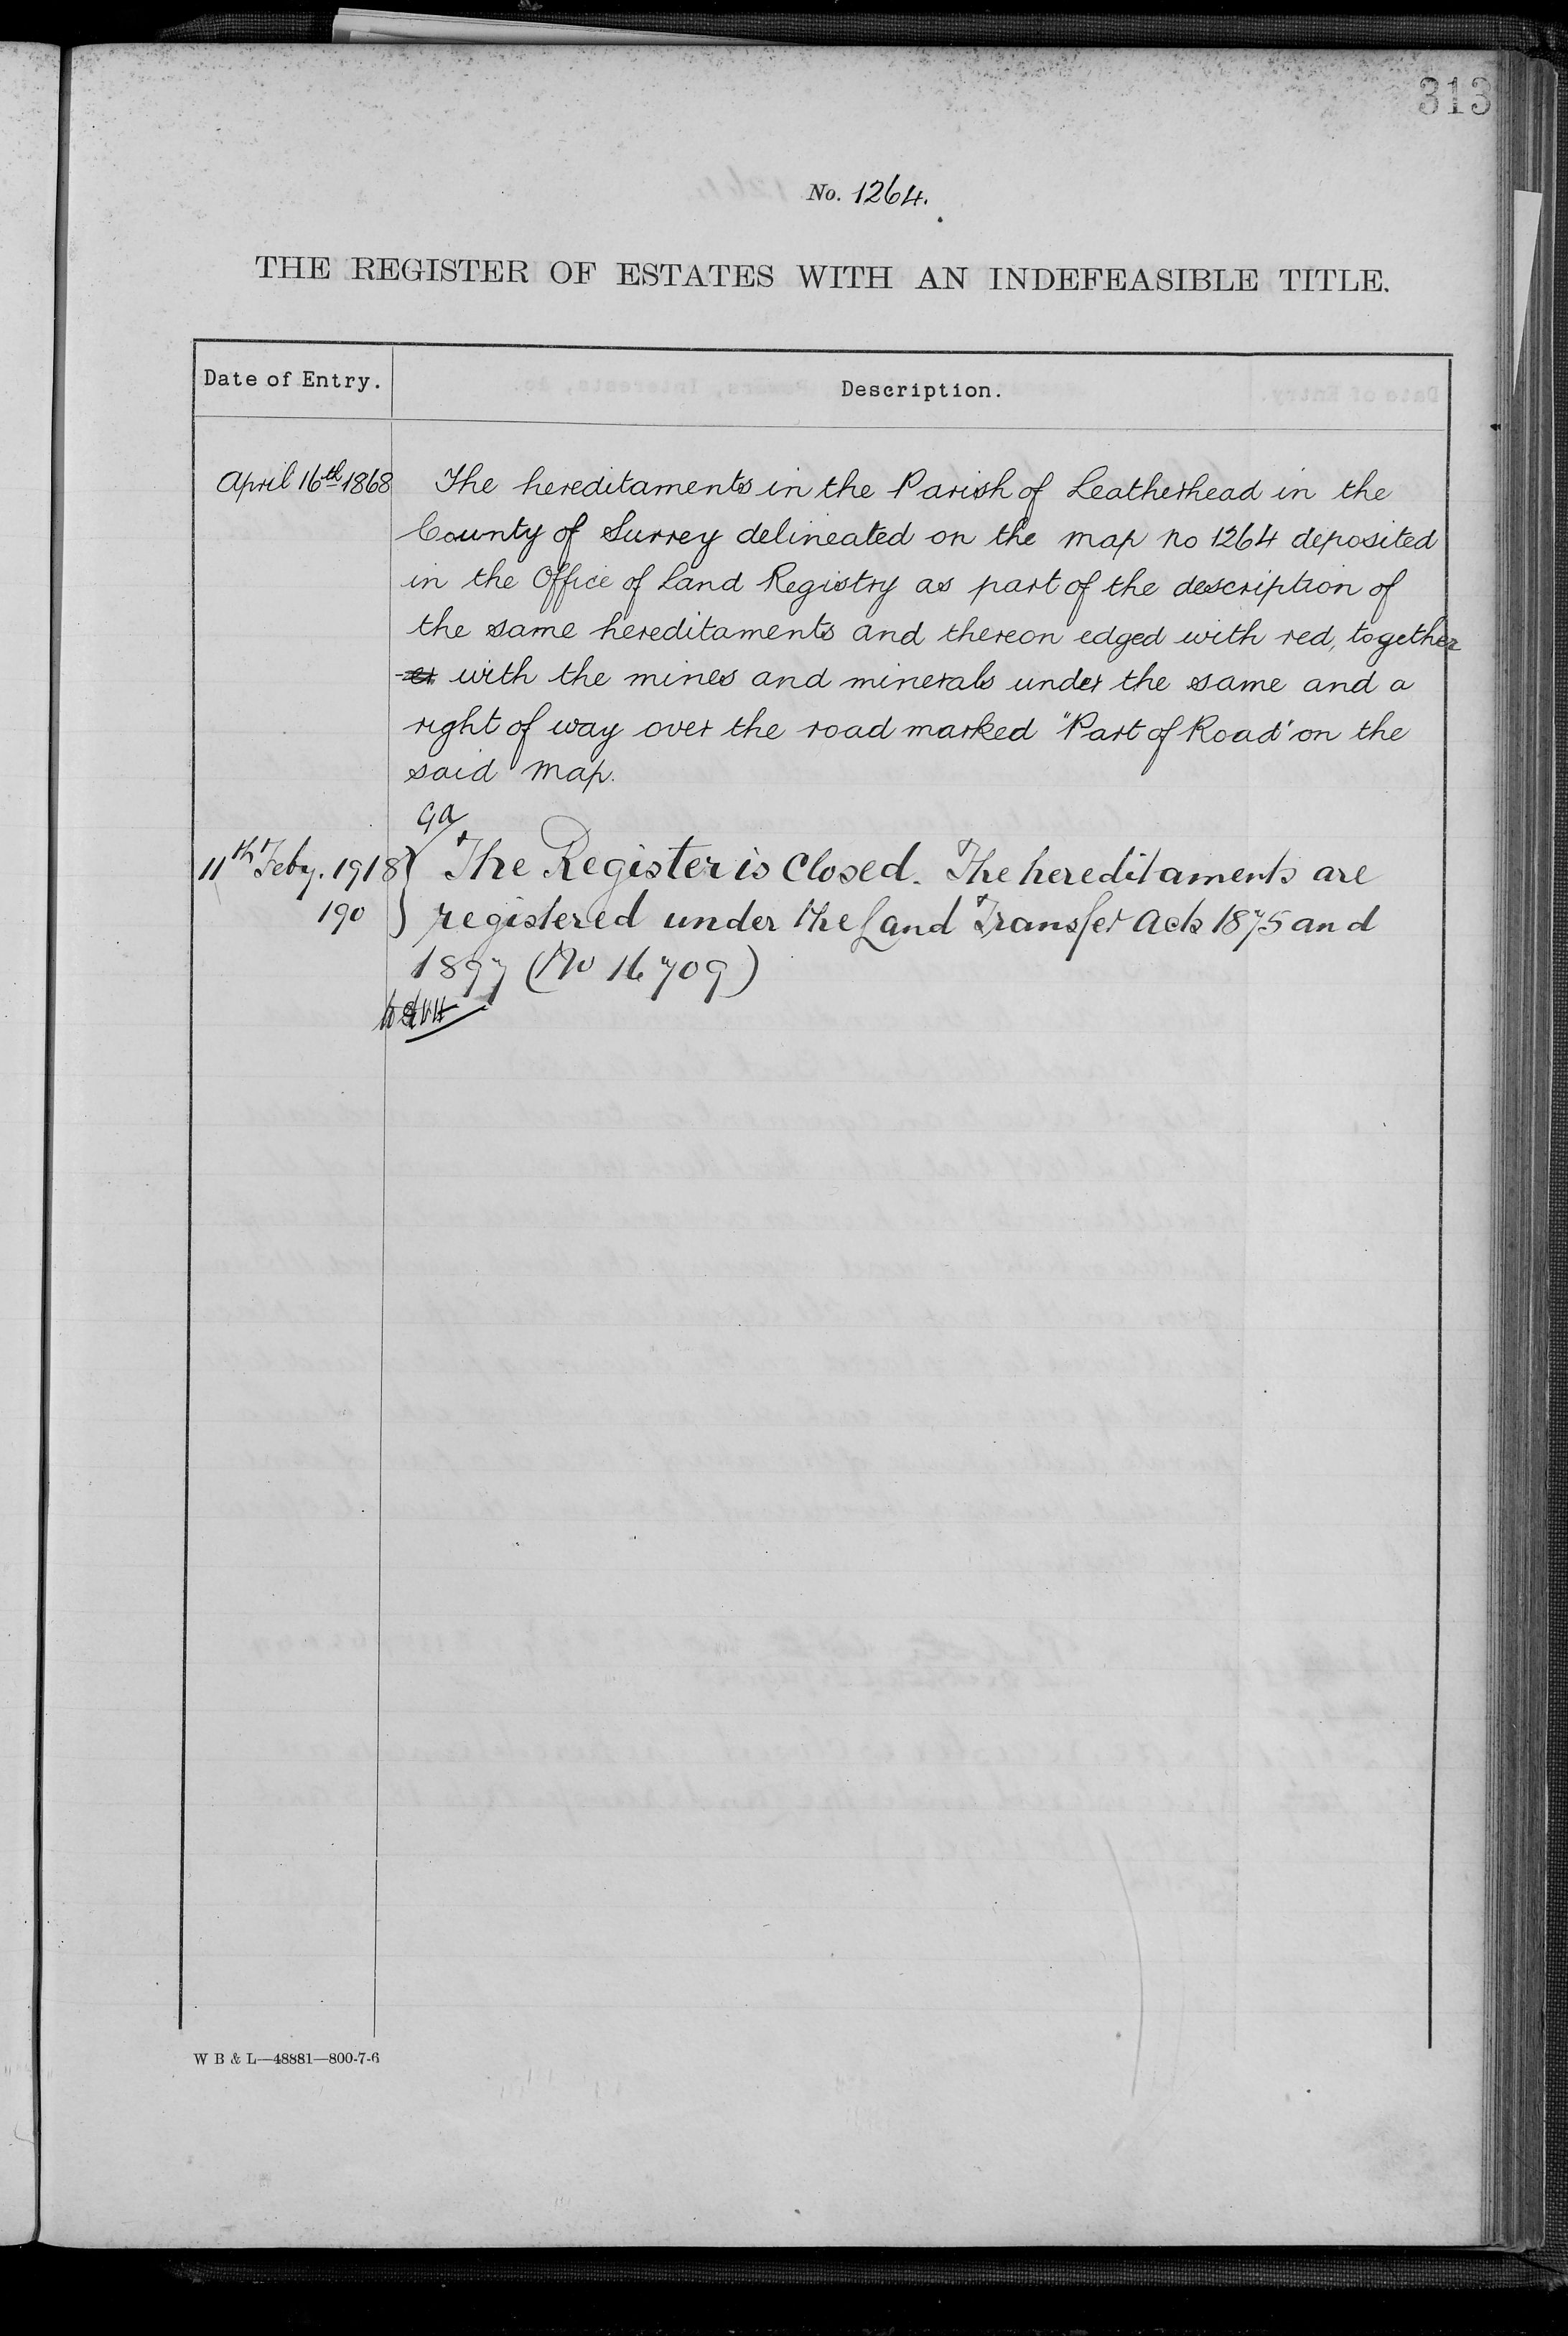 313
No. 1264.
THE REGISTER OF ESTATES WITH AN INDEFEASIBLE TITLE.
Date of Entry.
Description.
April 16th 1868
The hereditaments in the Parish of Leatherhead in the
County of Surrey delineated on the map no 1264 deposited
in the Office of Land Registry as part of the description of
the same hereditaments and thereon edged with red, together
with the mines and minerals under the same and a
right of way over the road marked "Part of Road" on the
said map.
Ga
11th Feby. 1918
190
The Register is Closed. The hereditaments are
registered under the Land Transfer Acts 1875 and
1897 (No 16709)
W B & L—48881—800-7-6